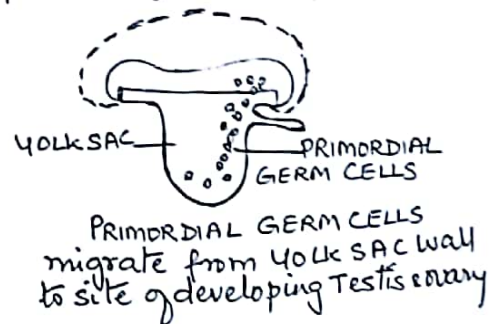 YOLK SAC
PRIMORDIAL
GERM CELLS
PRIMORDIAL GERM CELLS
migrate from YOLK SAC wall
to site of developing Testis & ovary